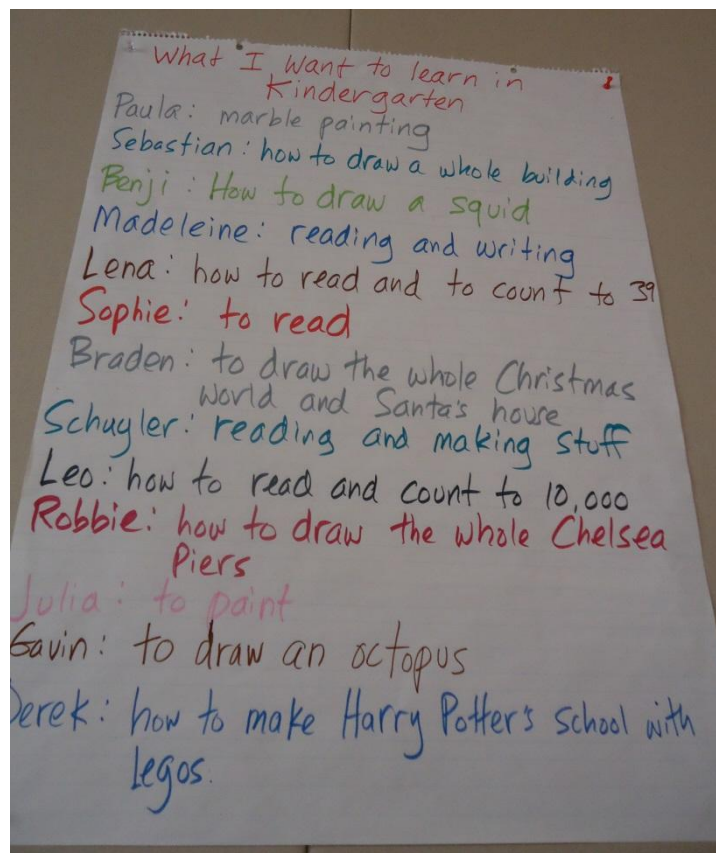 What I want to learn in
Kindergarten
Paula: marble painting
Sebastian: how to draw a whole building
Benji: How to draw a squid
Madeleine: reading and writing
Lena: how to read and to count to 39
Sophie: to read
Braden: to draw the whole Christmas
World and Santa's house
Schuyler: reading and making stuff
Leo: how to read and count to 10,000
Robbie: how to draw the whole Chelsea
Piers
Julia: to paint
Gavin: to draw an octopus
Derek: how to make Harry Potter's School with
Legos.